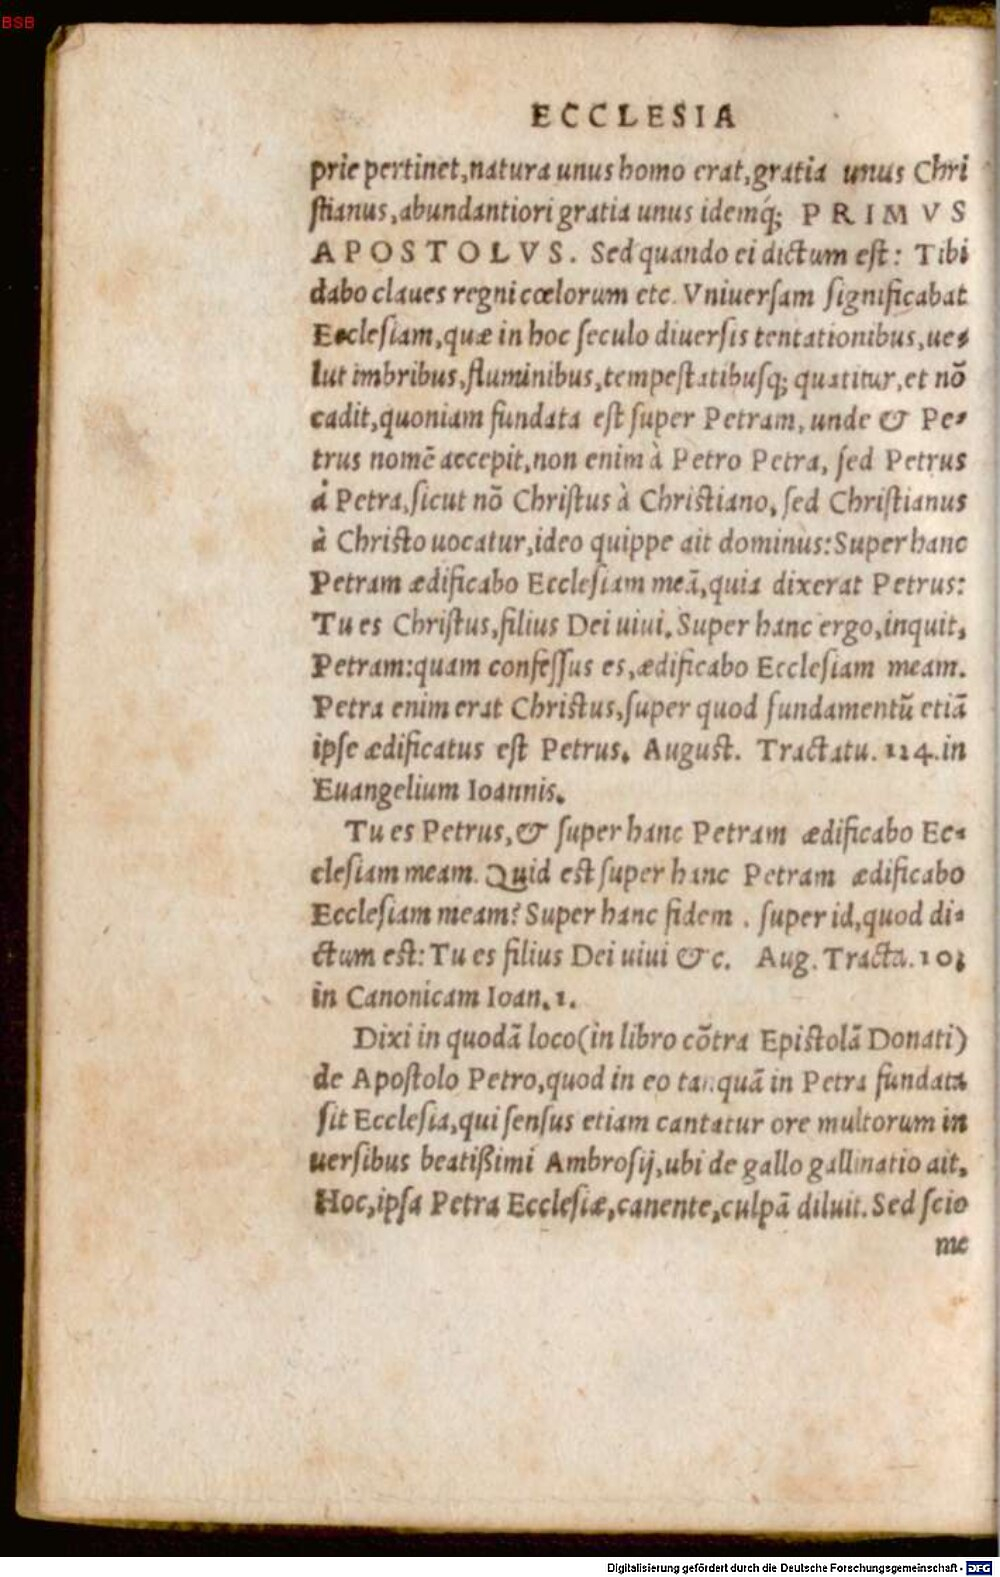 BSB
ECCLESIA
prie pertinet, natura unus homo erat, gratia unus Chri
ſtianus, abundantiori gratia unus idemq́; PRIMVS
APOSTOLVS. Sed quando ei dictum eſt: Tibi
dabo claues regni cœlorum etc. Vniuerſam ſignificabat
Eccleſiam, quæ in hoc ſeculo diuerſis tentationibus, ue⸗
lut imbribus, fluminibus, tempeſtatibuſq́; quatitur, et nõ
cadit, quoniam fundata eſt ſuper Petram, unde & Pe⸗
trus nomẽ accepit, non enim à Petro Petra, ſed Petrus
à Petra, ſicut nõ Chriſtus à Chriſtiano, ſed Chriſtianus
à Chriſto uocatur, ideo quippe ait dominus: Super hanc
Petram ædificabo Eccleſiam meã, quia dixerat Petrus:
Tu es Chriſtus, filius Dei uiui. Super hanc ergo, inquit,
Petram: quam confeſſus es, ædificabo Eccleſiam meam.
Petra enim erat Chriſtus, ſuper quod fundamentũ etiã
ipſe ædificatus eſt Petrus. Auguſt. Tractatu. 124. in
Euangelium Ioannis.
Tu es Petrus, & ſuper hanc Petram ædificabo Ec⸗
cleſiam meam. Quid eſt ſuper hanc Petram ædificabo
Eccleſiam meam? Super hanc fidem . ſuper id, quod di⸗
ctum eſt: Tu es filius Dei uiui &c. Aug. Tracta. 10.
in Canonicam Ioan. 1.
Dixi in quodã loco (in libro cõtra Epiſtolã Donati)
de Apoſtolo Petro, quod in eo tanquã in Petra fundata
ſit Eccleſia, qui ſenſus etiam cantatur ore multorum in
uerſibus beatißimi Ambroſij, ubi de gallo gallinatio ait,
Hoc, ipſa Petra Eccleſiæ, canente, culpã diluit. Sed ſcio
me
Digitalisierung gefördert durch die Deutsche Forschungsgemeinschaft - DFG